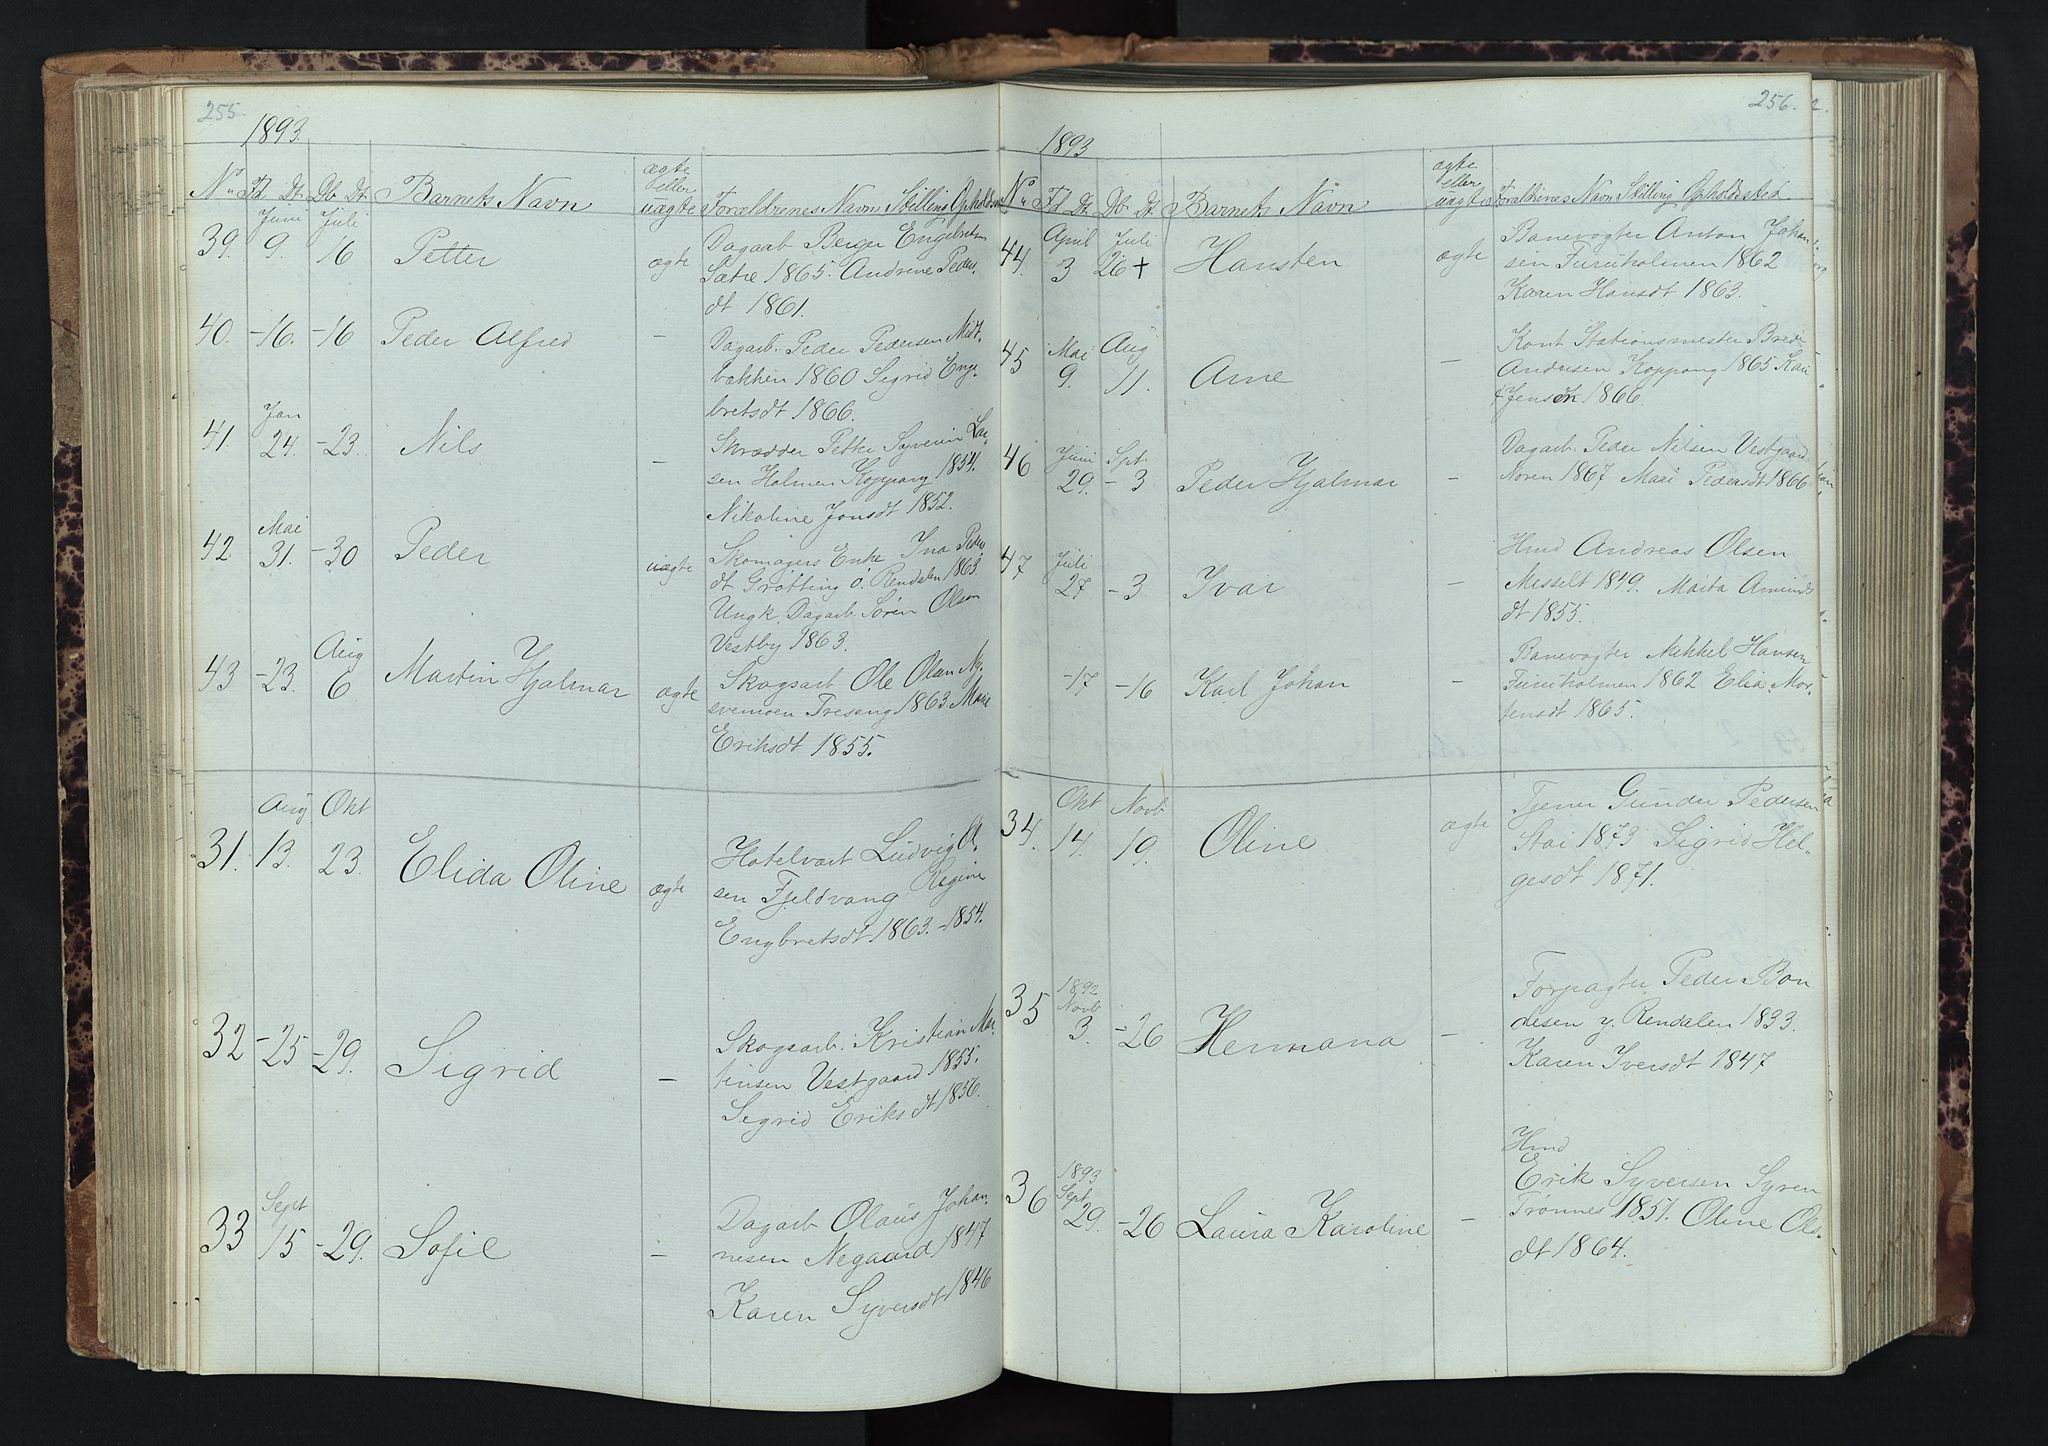 255.
1893.
No Fd Dt. Db Dt. Barnets Navn ægte eller uægte Forældrenes Navn Stilling Opholdss
39. Juni 9. Juli 16 Petter ægte Dagarb Berger Engebretsen
Sætre 1865. Andrine Peders
dt 1861.
40. -16. -16 Peder Alfred - Dagarb. Peder Pedersen Midt-
bækken 1860 Sigrid Enge-
bretsdt 1866.
41 Jan 24. -23. Nils - Skrædder Petter Syverin Lar-
sen Holmen Koppang 1854.
Nikoline Jonsdt 1852.
42 Mai 31. -30 Peder uægte Skomagers Enke Ina Peders
dt Grøtting ö. Rendalen 1863.
Ungk. Dagarb. Søren Olsen
Vestby 1863.
43 -23. Aug 6 Martin Hjalmar ægte Skogsarb Ole Olsen
Treseng 1863. Marie
Eriksdt 1855.
31. Aug 13. Okt 23. Elida Oline ægte Hotelvært Ludvig Ol-
sen Fjeldvang Regine
Engbretsdt 1863.-1854.
32 -25 -29. Sigrid - Skogsarb. Kristian Mar-
tinsen Vestgaard 1855.
Sigrid Eriksdt 1856.
33 Sept 15 -29. Sofie - Dagarb Olaus Johan-
nesen Negaard 1847
Karen Syversdt 1846
256.
1893
No Fd Dt. Db Dt. Barnets Navn ægte eller uægte Forældrenes Navn Stilling Opholdssted.
44. April 3 Juli 26 + Hansten ægte Banevogter Anton Johan-
sen Furuholmen 1862
Karen Hansdt 1863.
45 Mai 9. Aug 11. Arne - Kont Stationsmester Brede
Andersen Koppang 1865 Kari
f Jensen 1866.
46 Juni 29. Spt -3 Peder Hjalmar - Dagarb. Peder Nilsen Vestgaard
Noren 1867 Mari Pedersdt 1866
47 Juli 27 -3 Ivar - Hmd Andreas Olsen
Messelt 1849. Marta Amunds
dt 1855.
-17 -16 Karl Johan - Banevogter Mekkel Hansen
Furuholmen 1862 Elia Mor-
tensdt 1865.
34. Okt 14. Novb 19. Oline ægte Tjener Gunder Pedersen
Stai 1873 Sigrid Hel-
gesdt 1871.
35 1892 Novb 3. -26 Hermana - Forpagter Peder Bon
desen y. Rendalen 1833.
Karen Iversdt 1847
36 1893 Sept 29. -26 Laura Karoline - Hmd
Erik Syversen Syren
Trønnes 1857. Oline Ols-
dt 1864.